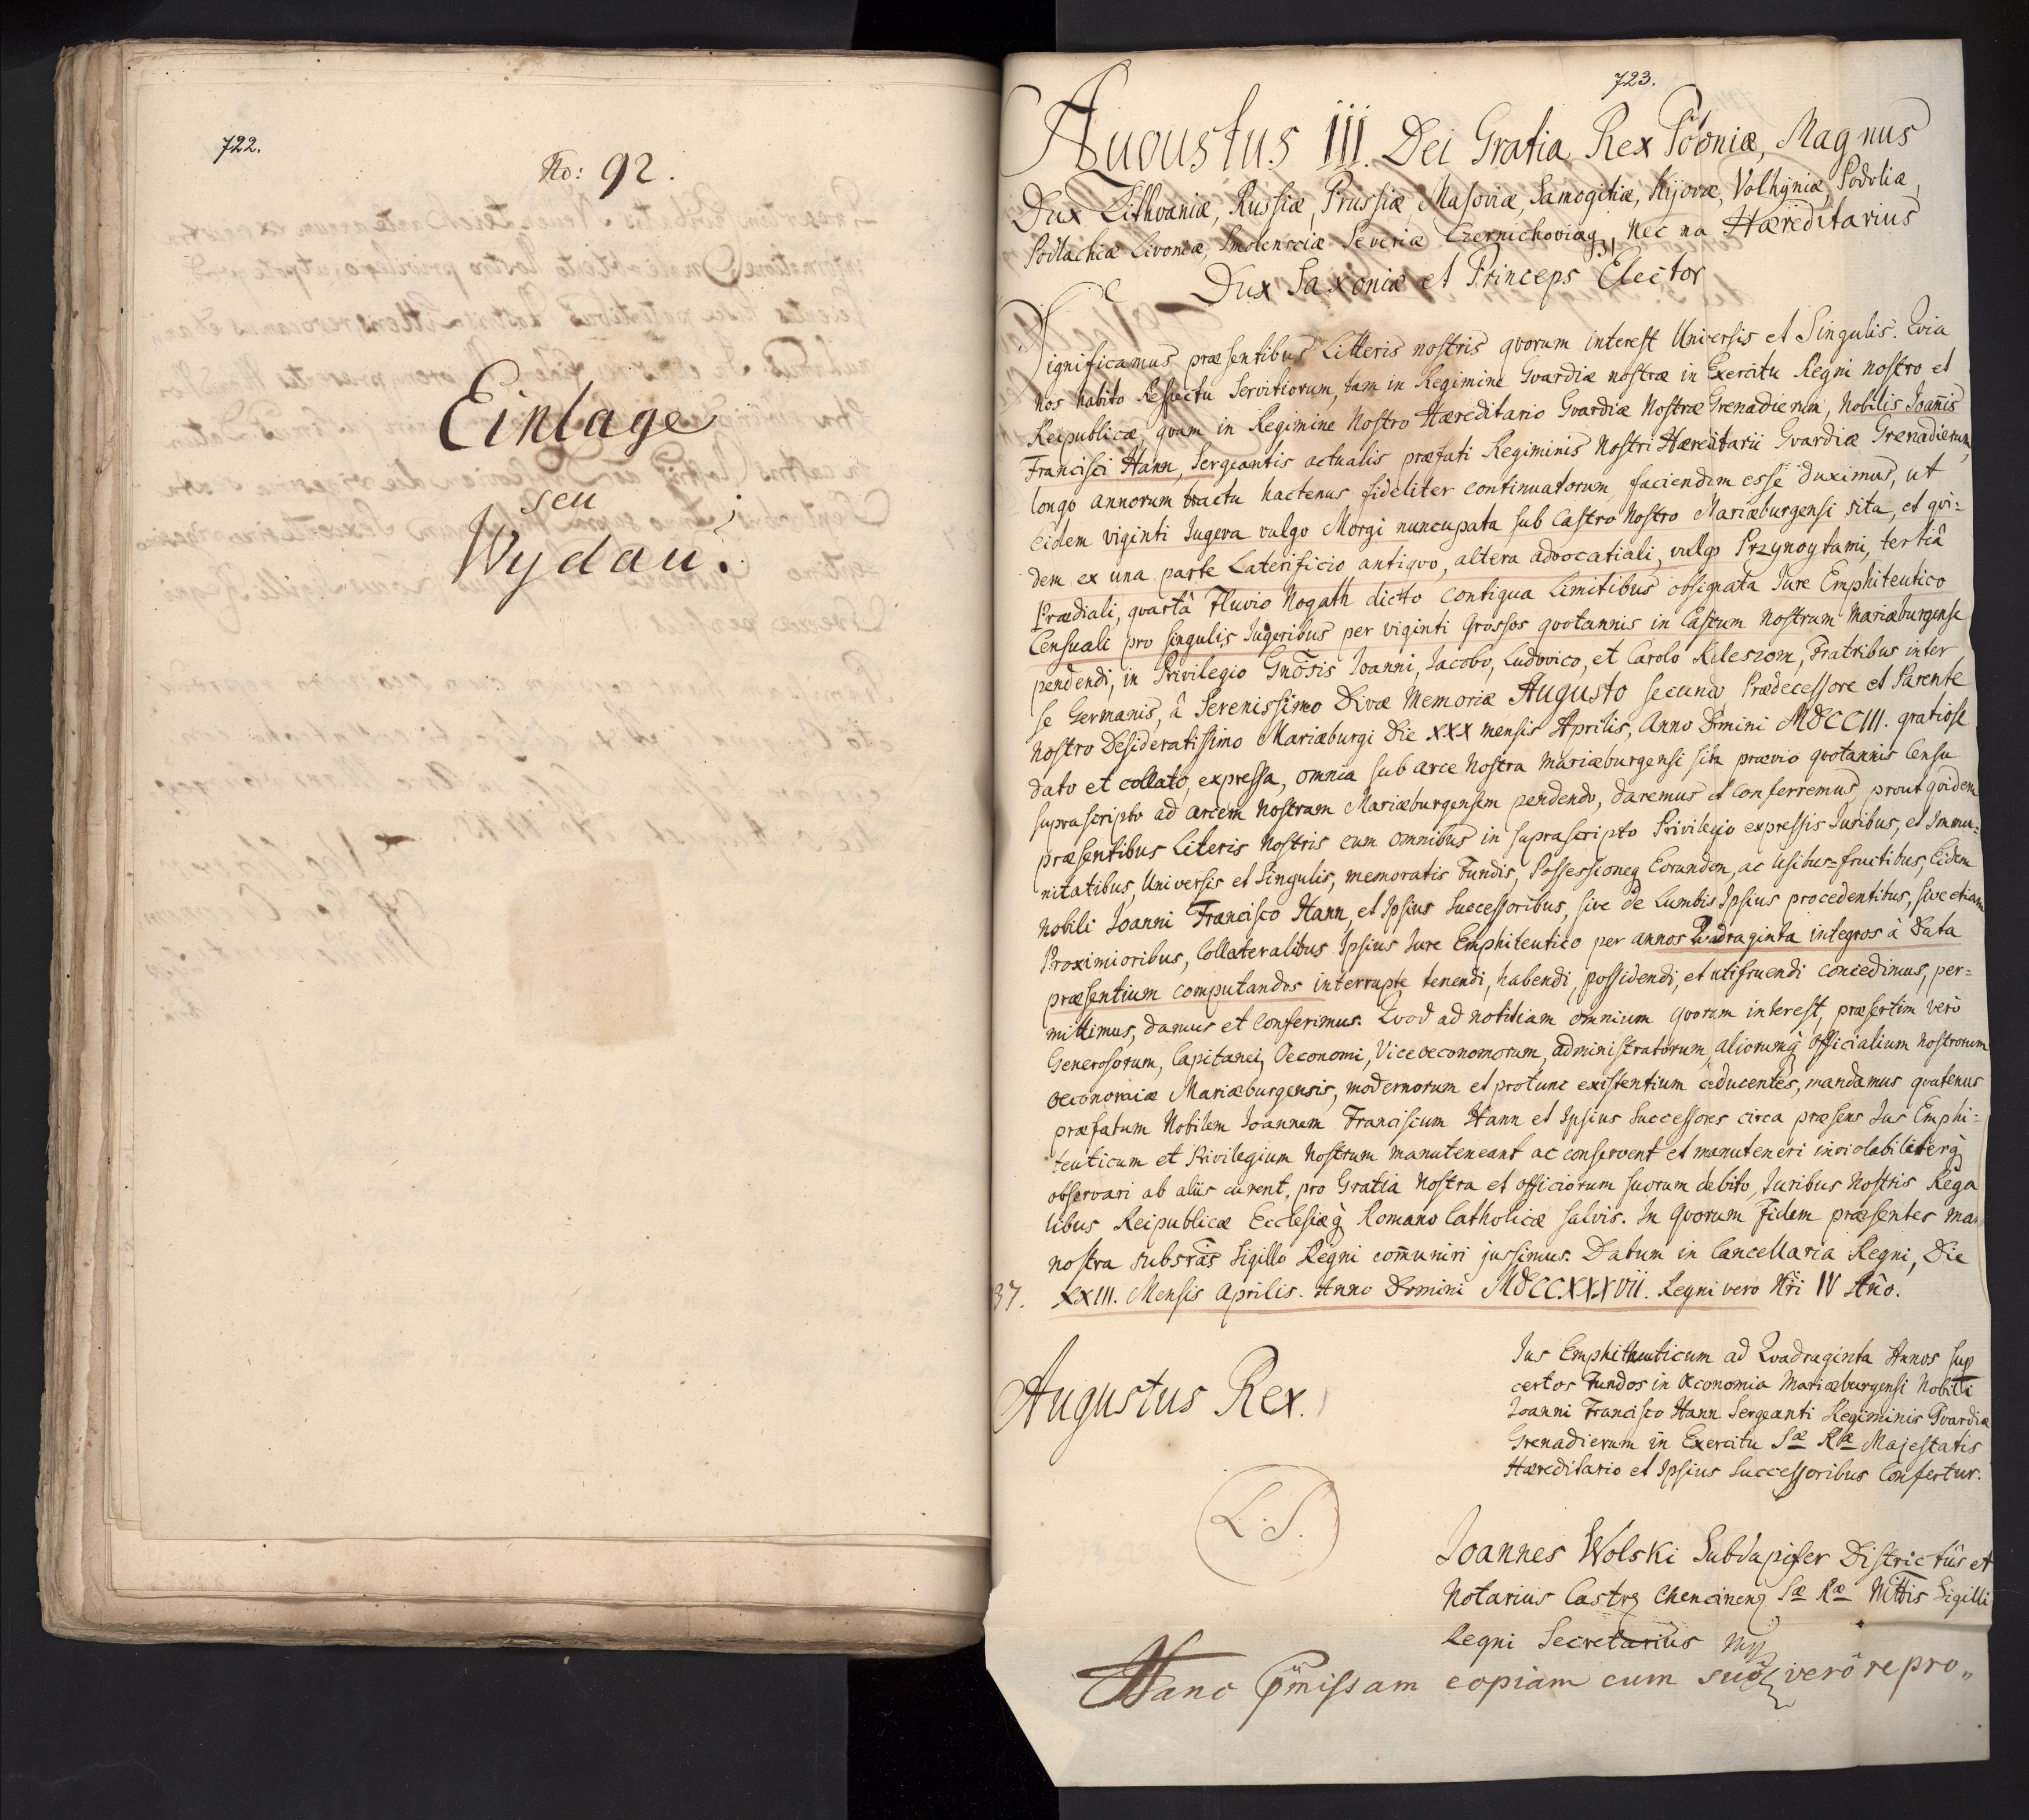 722.
No: 92.
Einlage
seu
Wydau.
723.
Augustus III. Dei Gratia Rex Poloniæ, Magnus
Dux Lithvaniæ, Russiæ, Prussiæ, Masoviæ, Samogitiæ, Kijoviæ, Volhyniæ, Podoliæ,
Podlachiæ Livoniæ, Smolensciæ Severiæ Czernichoviæq, nec na Hæreditarius
Dux Saxoniæ et Princeps Elector
Significamus præsentibus Litteris nostris qvorum interest Universis et Singulis. Qvia
nos habito Respectu Servitiorum, tam in Regimine Gvardiæ nostræ in Exercitu Regni nostro et
Reipublicæ, qvam in Regimine Nostro Hæreditario Gvardiæ Nostræ Grenadierum, Nobilis Joañis
Francisci Hann, Sergeantis actualis præfati Regiminis Nostri Hæreditarii Gvardiæ Grenadierum,
longo annorum tractu hactenus fideliter continuatorum, faciendum esse duximus, ut
eidem viginti Jugera vulgo Morgi nuncupata sub Castro Nostro Mariæburgensi sita, et qvi=
dem ex una parte Laterificio antiqvo, altera advocatiali, vulgo Przynoytami, tertiâ
Prædiali, qvartâ Fluvio Nogath dicto contigua Limitibus obsignata Jure Emphiteutico
Censuali pro singulis Jugeribus per viginti Grossos qvotannis in Castrum Nostrum Mariæburgense
pendendi, in Privilegio Gnosis Joanni, Jacobo, Ludovico, et Carolo Kilesiom, Fratribus inter
se Germanis, â Serenissimo Divæ Memoriæ Augusto secundo Prædecessore et Parente
nostro Desideratissimo Mariæburgi Die XXX mensis Aprilis, Anno Domini MDCCIII. gratiose
dato et collato, expressa, omnia sub arce Nostra Mariæburgensi sita prævio qvotannis Censu
suprascripto ad arcem Nostram Mariæburgensem pendendo, daremus et conferremus, prout qvidem
præsentibus Literis Nostris cum omnibus in suprascripto Privilegio expressis Juribus, et Immu=
nitatibus, Universis et Singulis, memoratis Fundis, Possessioneq Eorundem, ac Usibus=fructibus, Eidem
Nobili Joanni Francisco Hann, et Ipsius Successoribus, sive de Lumbis Ipsius procedentibus, sive etiam
Proximioribus, Collateralibus Ipsius Jure Emphiteutico per annos Qvadraginta integros à Data
præsentium computandos interrupte tenendi, habendi, possidendi, et utifruendi concedimus, per=
mittimus, damus et conferimus. Qvod ad notitiam omnium qvorum interest, præsertim verò
Generosorum, Capitanei, Oeconomi, Viceoeconomorum, administratorum, aliorumq officialium nostrorum
oeconomiæ Mariæburgensis, modernorum et protunc existentium deducentes, mandamus qvatenus
præfatum Nobilem Joannem Franciscum Hann et Ipsius Successores circa præsens Jus Emphi=
teuticum et Privilegium Nostrum manuteneant ac conservent et manuteneri inviolabiliterq
observari ab aliis curent, pro Gratia Nostra et officiorum suorum debito, Juribus Nostris Rega
libus Reipublicæ Ecclesiæq Romano Catholicæ salvis. In qvorum Fidem præsentes man
nostra subsras Sigillo Regni com̃uniri jussimus. Datum in Cancellaria Regni, Die
37. XXIII. Mensis Aprilis. Anno Domini MDCCXXXVII. Regni vero Nri IV Año.
Jus Emphitheuticum ad Qvadraginta Annos sup
certos Fundos in Oeconomia Mariæburgensi Nobili
Joanni Francisco Hann Sergeanti Regiminis Gvardiæ
Grenadierum in Exercitu Sæ Ræ Majestatis
Hæreditario et Ipsius Successoribus Confertur.
Augustus Rex.
L. S.
Joannes Wolski Subdapifer Districtûs et
Notarius Castrq Chencinenq Sæ Ræ Mttis Sigilli
Regni Secretarius mp
Hanc pmissam copiam cum suo verô re pro„